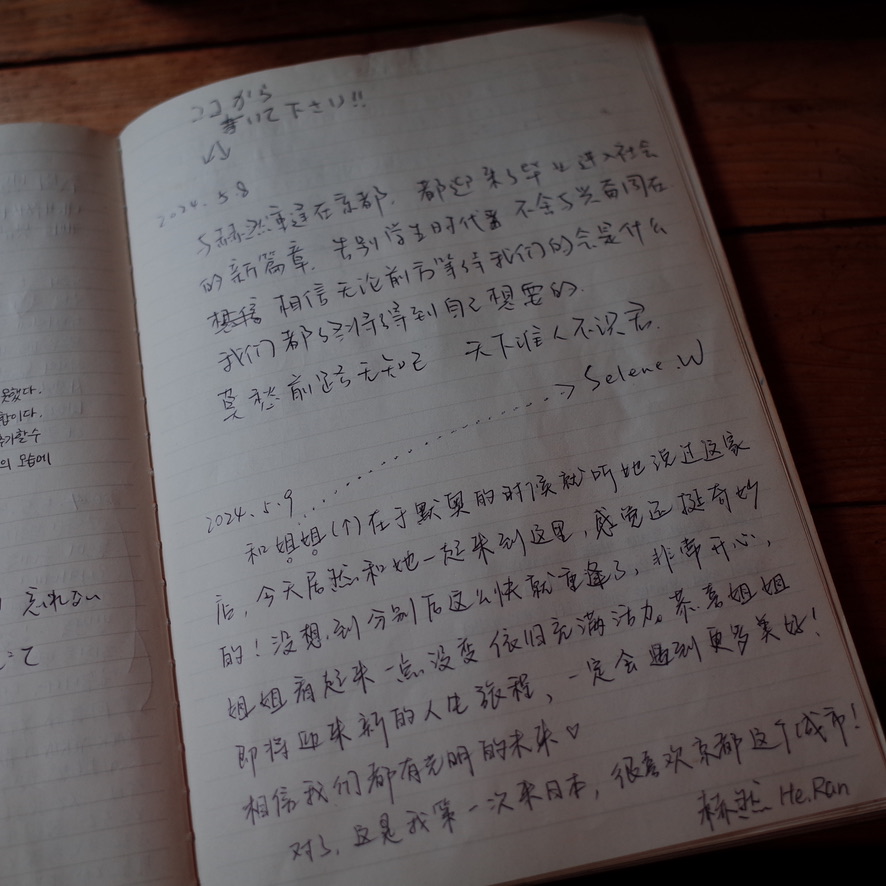 못했다.
합이다.
추가할 수
의 모습에
忘れない
して
ココから
書いて下さい!!
2024.5.8
与赫然重逢在京都,都迎来了毕业进入社会
的新篇章。告别学生时代
相信无论前方等待我们的会是什么
我们都终将得到自己想要的.
莫愁前路无知己 天下谁人不识君.
Selene.W
2024.5.9
和姐姐(个)在于默奥的时候就听她说过这家
店,今天居然和她一起来到这里,感觉还挺奇妙
的!没想到分别后这么快就重逢了,非常开心,
姐姐看起来一点没变依旧充满活力。恭喜姐姐
即将迎来新的人生旅程,一定会遇到更多美好!
相信我们都有光明的未来♡
对了,这是我第一次来日本,很喜欢京都这个城市!
赫然 He.Ran